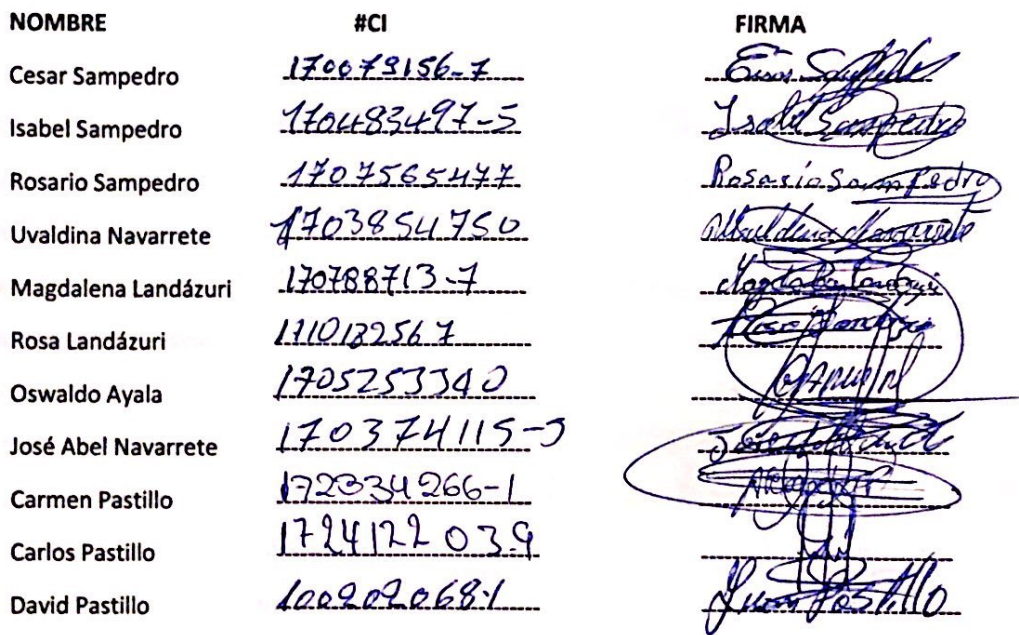 NOMBRE #CI FIRMA
Cesar Sampedro 170079156-7 Cesar
Isabel Sampedro 170483497-5 Isabel Sampedro
Rosario Sampedro 1707565477 Rosario Sampedro
Uvaldina Navarrete 1703854750 Navarrete
Magdalena Landázuri 170788713-7 Magdalena Landázuri
Rosa Landázuri Rosa
Oswaldo Ayala 1705253340
José Abel Navarrete 170374115-5 José
Carmen Pastillo 172334266-1
Carlos Pastillo 172412203-9
David Pastillo 100202068-1 Pastillo